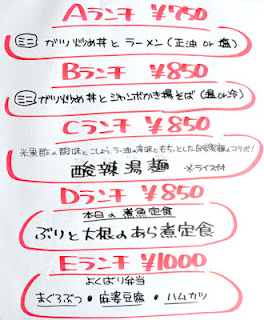 Aランチ ¥750
ミニ ガツ炒め丼とラーメン(正油or塩)
Bランチ ¥850
ミニ ガツ炒め丼とジャンボかき揚そば(温or冷)
Cランチ ¥850
米黒酢の酸味とこしょう、ラー油の辛味ともちっとした自家製麺のコラボ!
酸辣湯麺 ※ライス付
Dランチ ¥850
本日の煮魚定食
ぶりと大根のあら煮定食
Eランチ ¥1000
よくばり弁当
まぐろぶつ・麻婆豆腐・ハムカツ